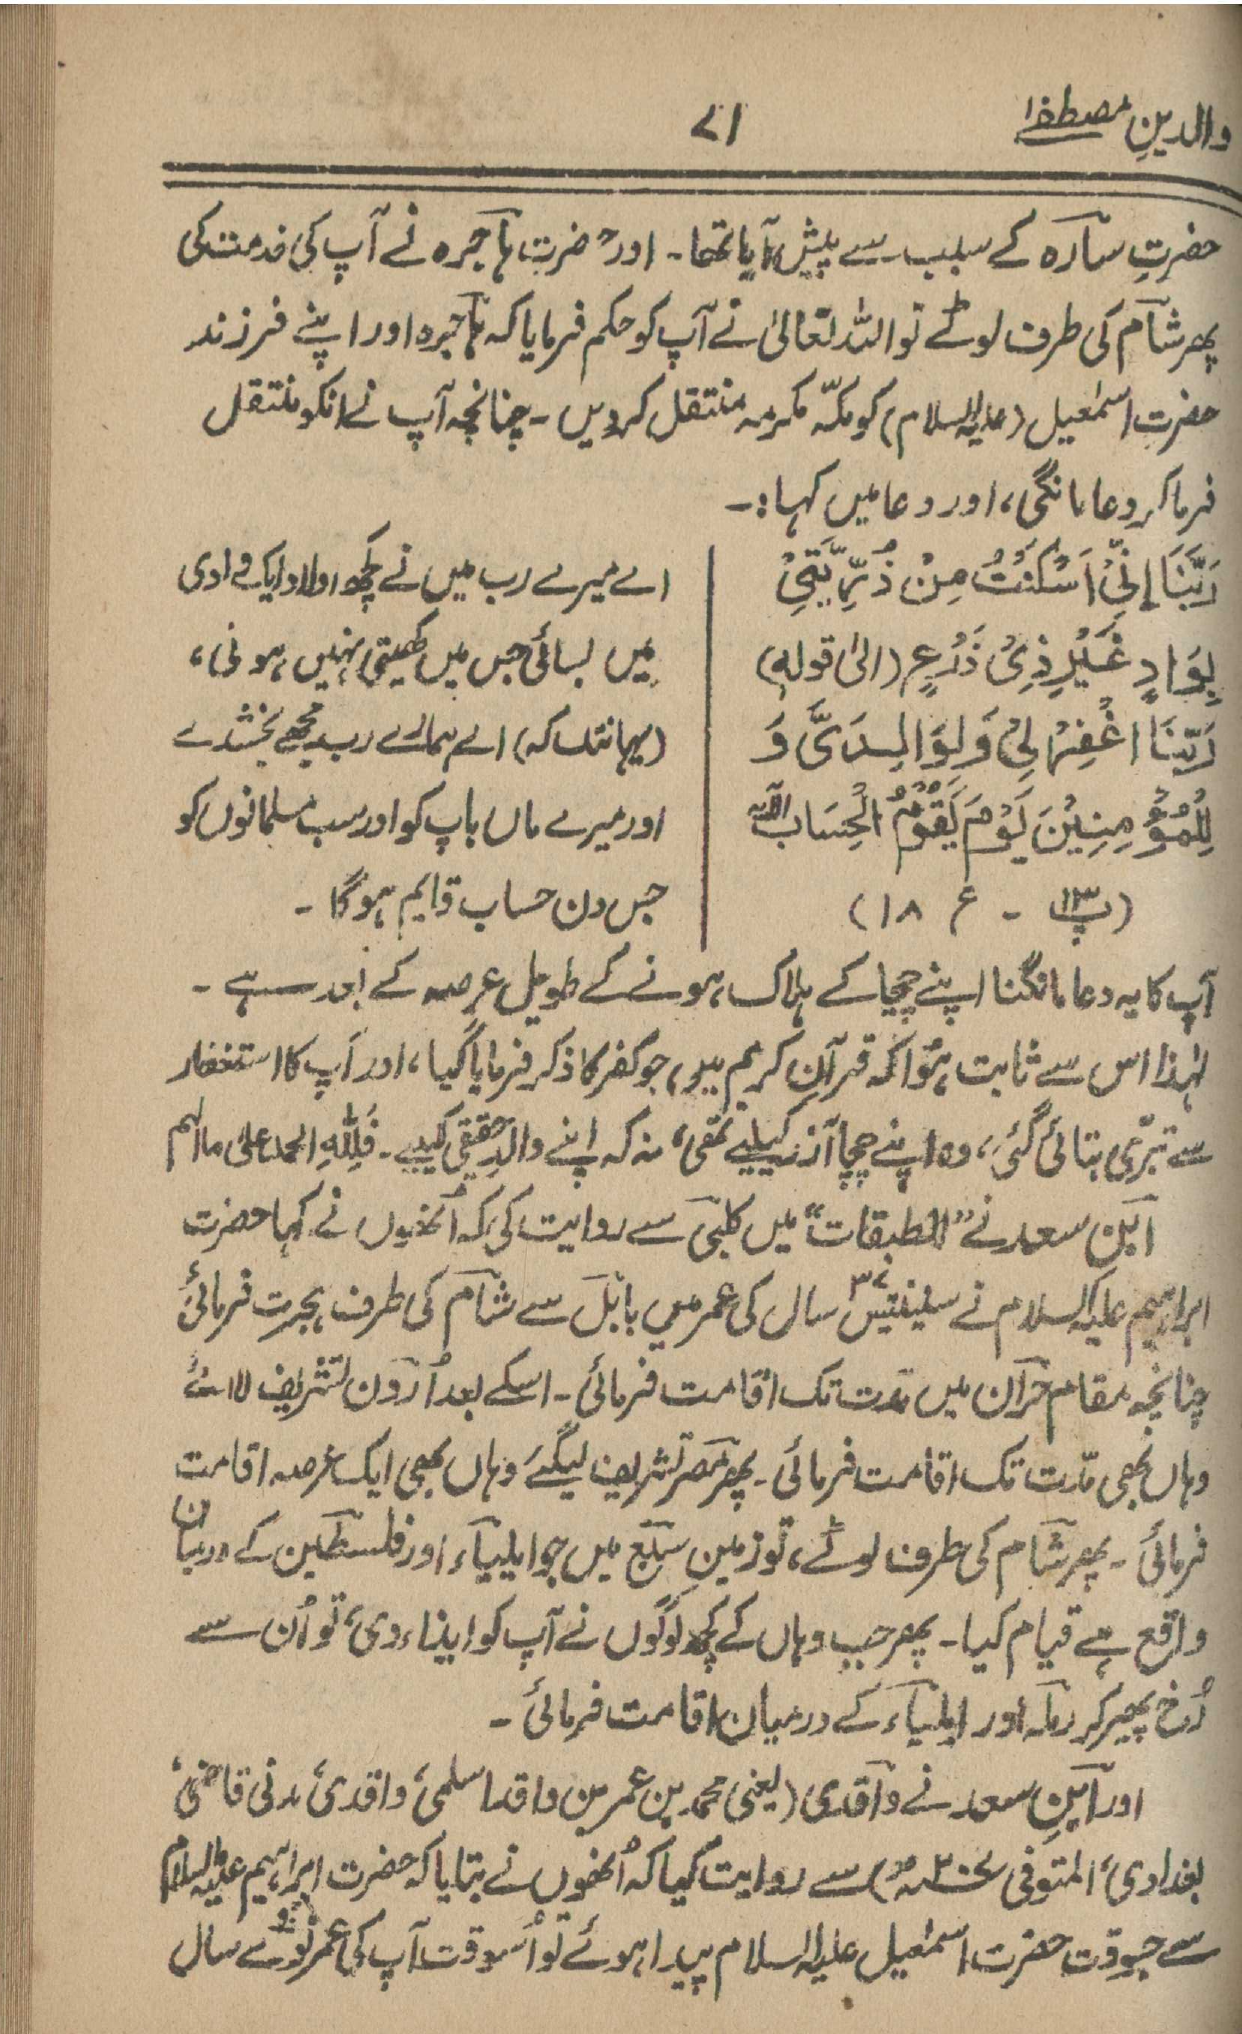 والدینِ مصطفےٰ
۷۱
حضرتِ سارہ کے سبب سے پیش آیا تھا۔ اور حضرت ہاجرہ نے آپ کی خدمت کی
پھر شام کی طرف لوٹے تو اللہ تعالیٰ نے آپ کو حکم فرمایا کہ ہاجرہ اور اپنے فرزند
حضرت اسمٰعیل (علیہ السلام) کو مکّہ مکرمہ منتقل کر دیں۔ چنانچہ آپ نے انکو منتقل
فرما کر دعا مانگی، اور دعا میں کہا:۔
رَبَّنَا إِنِّیْ اَسْکَنْتُ مِنْ ذُرِّیَّتِیْ
بِوَادٍ غَیْرِ ذِیْ زَرْعٍ (الیٰ قولہٖ)
رَبَّنَا اغْفِرْلِیْ وَلِوَالِدَیَّ وَ
لِلْمُؤْمِنِیْنَ یَوْمَ یَقُوْمُ الْحِسَاب الآیہ
(پ۱۳ ۔ ع ۱۸)
اے میرے رب میں نے کچھ اولاد ایک وادی
میں بسائی جس میں کھیتی نہیں ہوتی،
(یہانتک کہ) اے ہمارے رب مجھے بخشدے
اور میرے ماں باپ کو اور سب مسلمانوں کو
جس دن حساب قایم ہو گا ۔
آپ کا یہ دعا مانگنا اپنے چچا کے ہلاک ہونے کے طویل عرصہ کے بعد ہے ۔
لہٰذا اس سے ثابت ہؤا کہ قرآنِ کریم میں جو کفر کا ذکر فرمایا گیا، اور آپ کا استغفار
سے تبرّی بتائی گئی، وہ اپنے چچا آزر کیلیے تھی، نہ کہ اپنے والدِ حقیقی کیلیے ۔ فَلِلّٰہِ الحمد علیٰ ما الہم
ابن سعد نے "الطبقات" میں کلبی سے روایت کی کہ اُنھوں نے کہا حضرت
ابراہیم علیہ السلام نے سینتیس ۳۷ سال کی عمر میں بابل سے شام کی طرف ہجرت فرمائی
چنانچہ مقام حرّان میں مدت تک اقامت فرمائی ۔ اسکے بعد اُردن تشریف لائے
وہاں بھی مدّت تک اقامت فرمائی ۔ پھر مصر تشریف لیگئے وہاں بھی ایک عرصہ اقامت
فرمائی ۔ پھر شام کی طرف لوٹے، تو زمینِ سبع میں جو ایلیاء اور فلسطین کے درمیان
واقع ہے قیام کیا ۔ پھر جب وہاں کے کچھ لوگوں نے آپ کو ایذاء دی، تو اُن سے
رُخ پھیر کر رملہ اور ایلیاء کے درمیان اقامت فرمائی ۔
اور ابنِ سعد نے واقدی (یعنی محمد بن عمر بن واقد اسلمی، واقدی، مدنی قاضی،
بغدادی، المتوفی ۲۰۷ھ) سے روایت کیا کہ اُنھوں نے بتایا کہ حضرت ابراہیم علیہ السلام
سے جسوقت حضرت اسمٰعیل علیہ السلام پیدا ہوئے تو اُسوقت آپ کی عمر نوّے سال